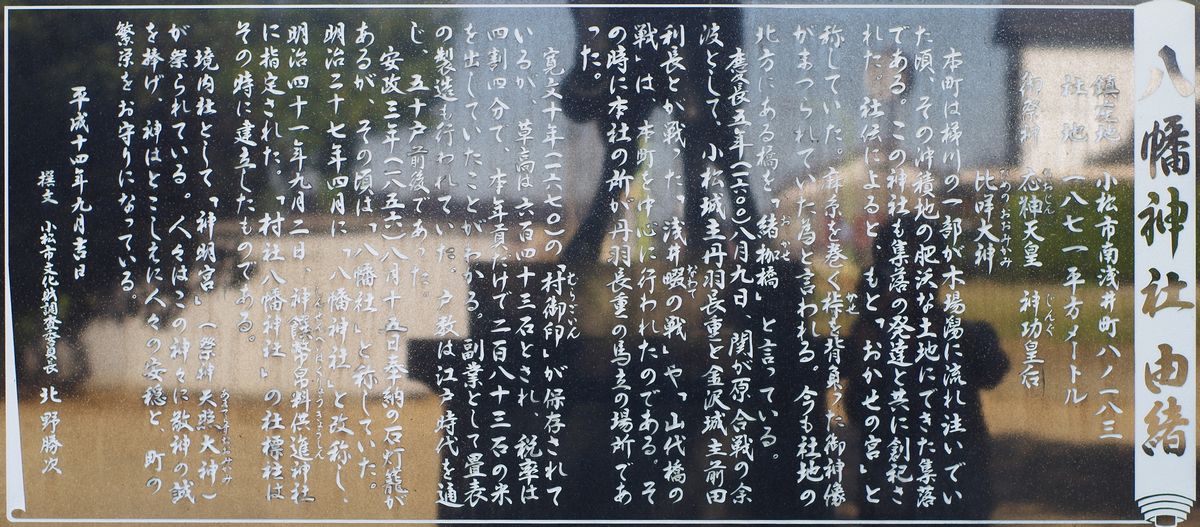 八幡神社 由緒
鎮座地 小松市南浅井町ハノ一八三
社地 一八七一平方メートル
御祭神 応神天皇 神功皇后
比咩大神
本町は梯川の一部が木場潟に流れ注いでい
た頃、その沖積地の肥沃な土地にできた集落
である。この神社も集落の発達と共に創祀さ
れた。社伝によると、もと「おかせの宮」と
称していた。麻糸を巻く桛を背負った御神像
がまつられていた為と言われる。今も社地の
北方にある橋を「緒桛橋」と言っている。
慶長五年(一六〇〇)八月九日、関が原合戦の余
波として、小松城主丹羽長重と金沢城主前田
利長とが戦った「浅井畷の戦」や「山代橋の
戦」は、本町を中心に行われたのである。そ
の時に本社の所が丹羽長重の馬立の場所であ
った。
寛文十年(一六七〇)の「村御印」が保存されて
いるが、草高は六百四十三石とされ、税率は
四割四分で、本年貢だけで二百八十三石の米
を出していたことがわかる。副業として畳表
の製造も行われていた。戸数は江戸時代を通
じ、五十戸前後であった。
安政三年(一八五六)八月十五日奉納の石灯籠が
あるが、その頃は「八幡社」と称していた。
明治二十七年四月に「八幡神社」と改称し、
明治四十一年九月二日、神饌幣帛料供進神社
に指定された。「村社八幡神社」の社標柱は
その時に建立したものである。
境内社として「神明宮」(祭神 天照大神)
が祭られている。人々はこの神々に敬神の誠
を捧げ、神はとこしえに人々の安穏と、町の
繁栄をお守りになっている。
平成十四年九月吉日
撰文 小松市文化財調査委員長 北野勝次